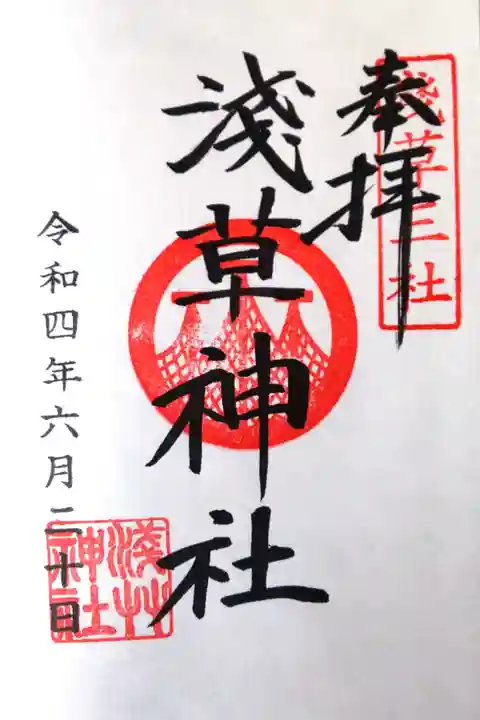 奉拝
淺草三社
淺草神社
淺草
神社
令和四年六月二十日